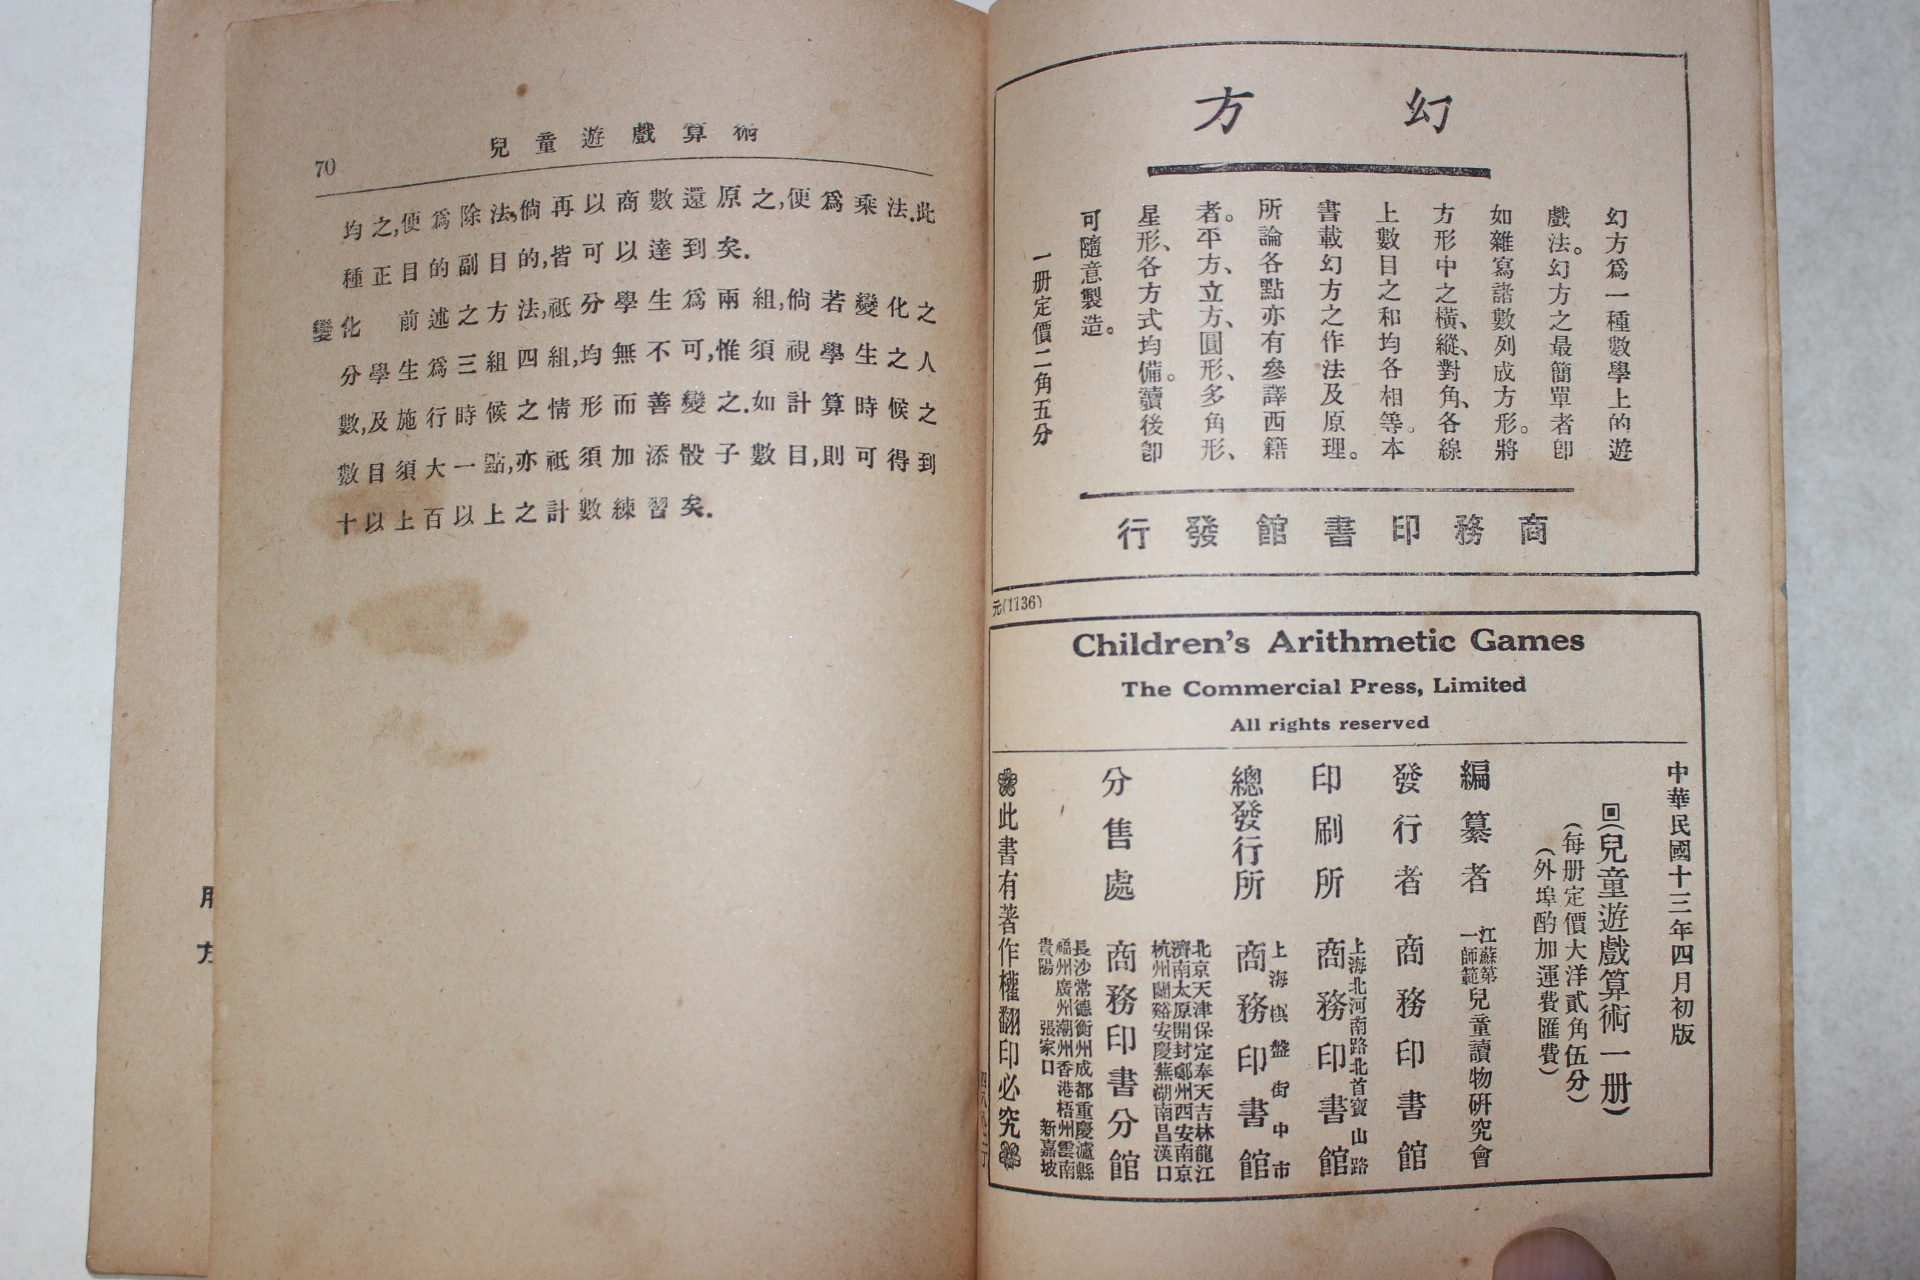 70
兒童遊戲算術
均之,便爲除法,倘再以商數還原之,便爲乘法.此
種正目的副目的,皆可以達到矣.
變化　前述之方法,祗分學生爲兩組,倘若變化之
分學生爲三組四組,均無不可,惟須視學生之人
數,及施行時候之情形而善變之.如計算時候之
數目須大一點,亦祗須加添骰子數目,則可得到
十以上百以上之計數練習矣.
幻方
幻方爲一種數學上的遊
戲法。幻方之最簡單者卽
如雜寫諸數列成方形。將
方形中之橫、縱、對角、各線
上數目之和均各相等。本
書載幻方之作法及原理。
所論各點亦有參譯西籍
者。平方、立方、圓形、多角形、
星形、各方式均備。讀後卽
可隨意製造。
一册定價二角五分
商務印書館發行
元(1136)
Children's Arithmetic Games
The Commercial Press, Limited
All rights reserved
中華民國十三年四月初版
(兒童遊戲算術一册)
(每册定價大洋貳角伍分)
(外埠酌加運費匯費)
編纂者　江蘇第一師範兒童讀物硏究會
發行者　商務印書館
印刷所　上海北河南路北首寶山路　商務印書館
總發行所　上海棋盤街中市　商務印書館
分售處
北京天津保定奉天吉林龍江
濟南太原開封鄭州西安南京
杭州蘭谿安慶蕪湖南昌漢口
商務印書分館
長沙常德衡州成都重慶瀘縣
福州廣州潮州香港梧州雲南
貴陽　張家口　新嘉坡
此書有著作權翻印必究